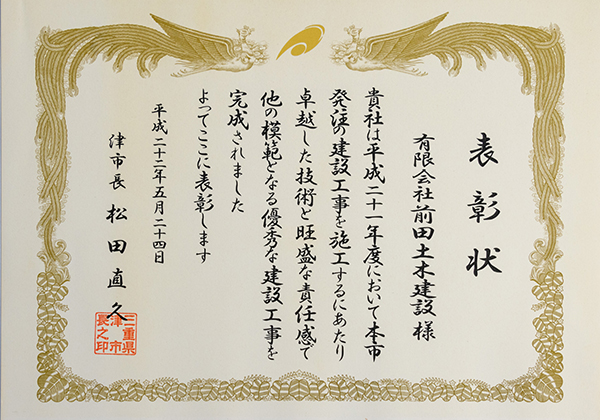 表彰状
有限会社前田土木建設 様
貴社は平成二十一年度において本市
発注の建設工事を施工するにあたり
卓越した技術と旺盛な責任感で
他の模範となる優秀な建設工事を
完成されました
よってここに表彰します
平成二十二年五月二十四日
津市長 松田直久
三重県
津市
長之印